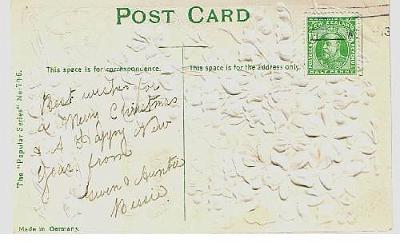 POST CARD
NEW ZEALAND
HALFPENNY
This space is for correspondence.
This space is for the address only.
Best wishes for
a Merry Christmas
& A Happy New
Year from
& Auntie
Bessie.
The "Popular Series" No.
Made in Germany.